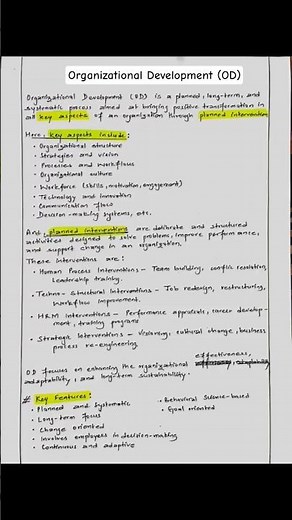 Organizational Development (OD)
Organizational Development (OD) is a planned, long-term, and
systematic process aimed at bringing positive transformation in
all key aspects of an organization through planned intervention
Here, key aspects include:
• Organizational structure
• Strategies and vision
• Processes and workflows
• Organizational culture
• Workforce (skills, motivation, engagement)
• Technology and innovation
• Communication flow
• Decision-making systems, etc.
And, planned interventions are deliberate and structured
activities designed to solve problems, improve performance,
and support change in an organization.
These interventions are:
• Human Process Interventions - Team building, conflict resolution,
Leadership training.
• Techno-Structural Interventions - Job redesign, restructuring,
workflow improvement.
• HRM Interventions - Performance appraisals, career develop-
ment, training programs
• Strategic Interventions - Visioning, cultural change, business
process re-engineering
OD focuses on enhancing the organizational effectiveness,
adaptability, and long-term sustainability.
# Key Features:
• Planned and systematic
• Long-term focus
• Change oriented
• Involves employees in decision-making
• Continuous and adaptive
• Behavioral Science-based
• Goal oriented